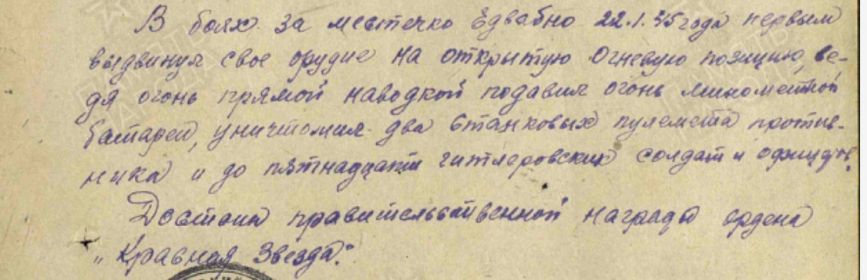 В боях за местечко Едвабно 22.1.45 года первым
выдвинул свое орудие на открытую огневую позицию, ве-
дя огонь прямой наводкой подавил огонь минометной
батареи, уничтожил два станковых пулемета против-
ника и до пятнадцати гитлеровских солдат и офицеров.
Достоин правительственной награды ордена
„Красная Звезда".